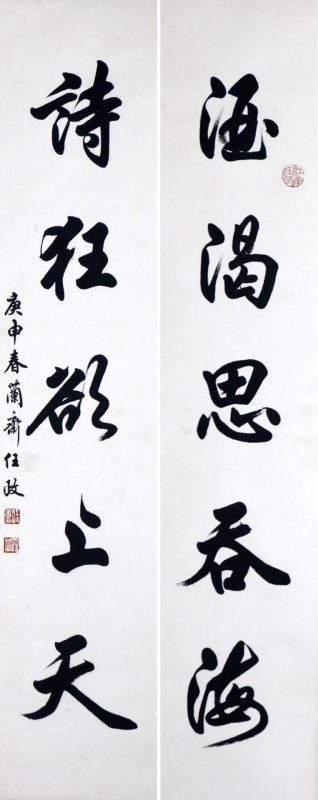 酒渴思吞海
詩狂欲上天
庚申春蘭齋任政